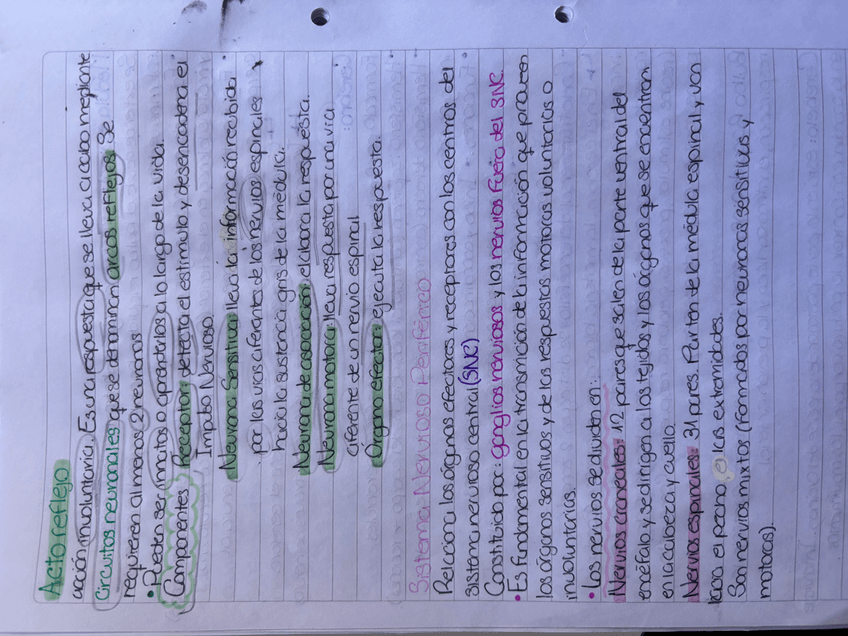 Acto reflejo
acción involuntaria. Es una respuesta que se lleva a cabo mediante
circuitos neuronales que se denominan arcos reflejos. Se
requieren al menos 2 neuronas
• Pueden ser innatos o aprendidos a lo largo de la vida.
Componentes Receptor: detecta el estímulo y desencadena el
Impulso Nervioso
Neurona Sensitiva: lleva la información recibida
por las vías aferentes de los nervios espinales
hacia la sustancia gris de la médula.
Neurona de asociación: elabora la respuesta.
Neurona motora: lleva respuesta por una vía
eferente de un nervio espinal
Órgano efector: ejecuta la respuesta.
Sistema Nervioso Periférico
Relaciona los órganos efectores y receptores con los centros del
sistema nervioso central (SNC)
Constituido por: ganglios nerviosos y los nervios fuera del SNC.
• Es fundamental en la transmición de la información que proveen
los órganos sensitivos y de las respuestas motoras voluntarias o
involuntarias.
• Los nervios se dividen en:
Nervios craneales: 12 pares que salen de la parte ventral del
encéfalo y se dirigen a los tejidos y los órganos que se encuentran
en la cabeza y cuello.
Nervios espinales: 31 pares. Parten de la médula espinal y van
hacia el pecho, las extremidades.
Son nervios mixtos (formados por neuronas sensitivas y
motoras).